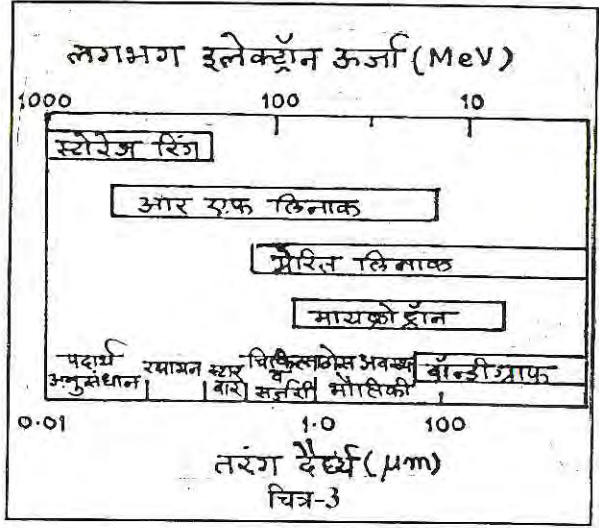 लगभग इलेक्ट्रॉन ऊर्जा (MeV)
1000 100 10
स्टोरेज रिंग
आर एफ लिनाक
प्रेरित लिनाक
मायक्रोट्रॉन
पदार्थ अनुसंधान
रसायन
स्टार वार
चिकित्सा व सर्जरी
ठोस अवस्था भौतिकी
वॉन्डीग्राफ
0.01 1.0 100
तरंग दैर्घ्य (μm)
चित्र-3